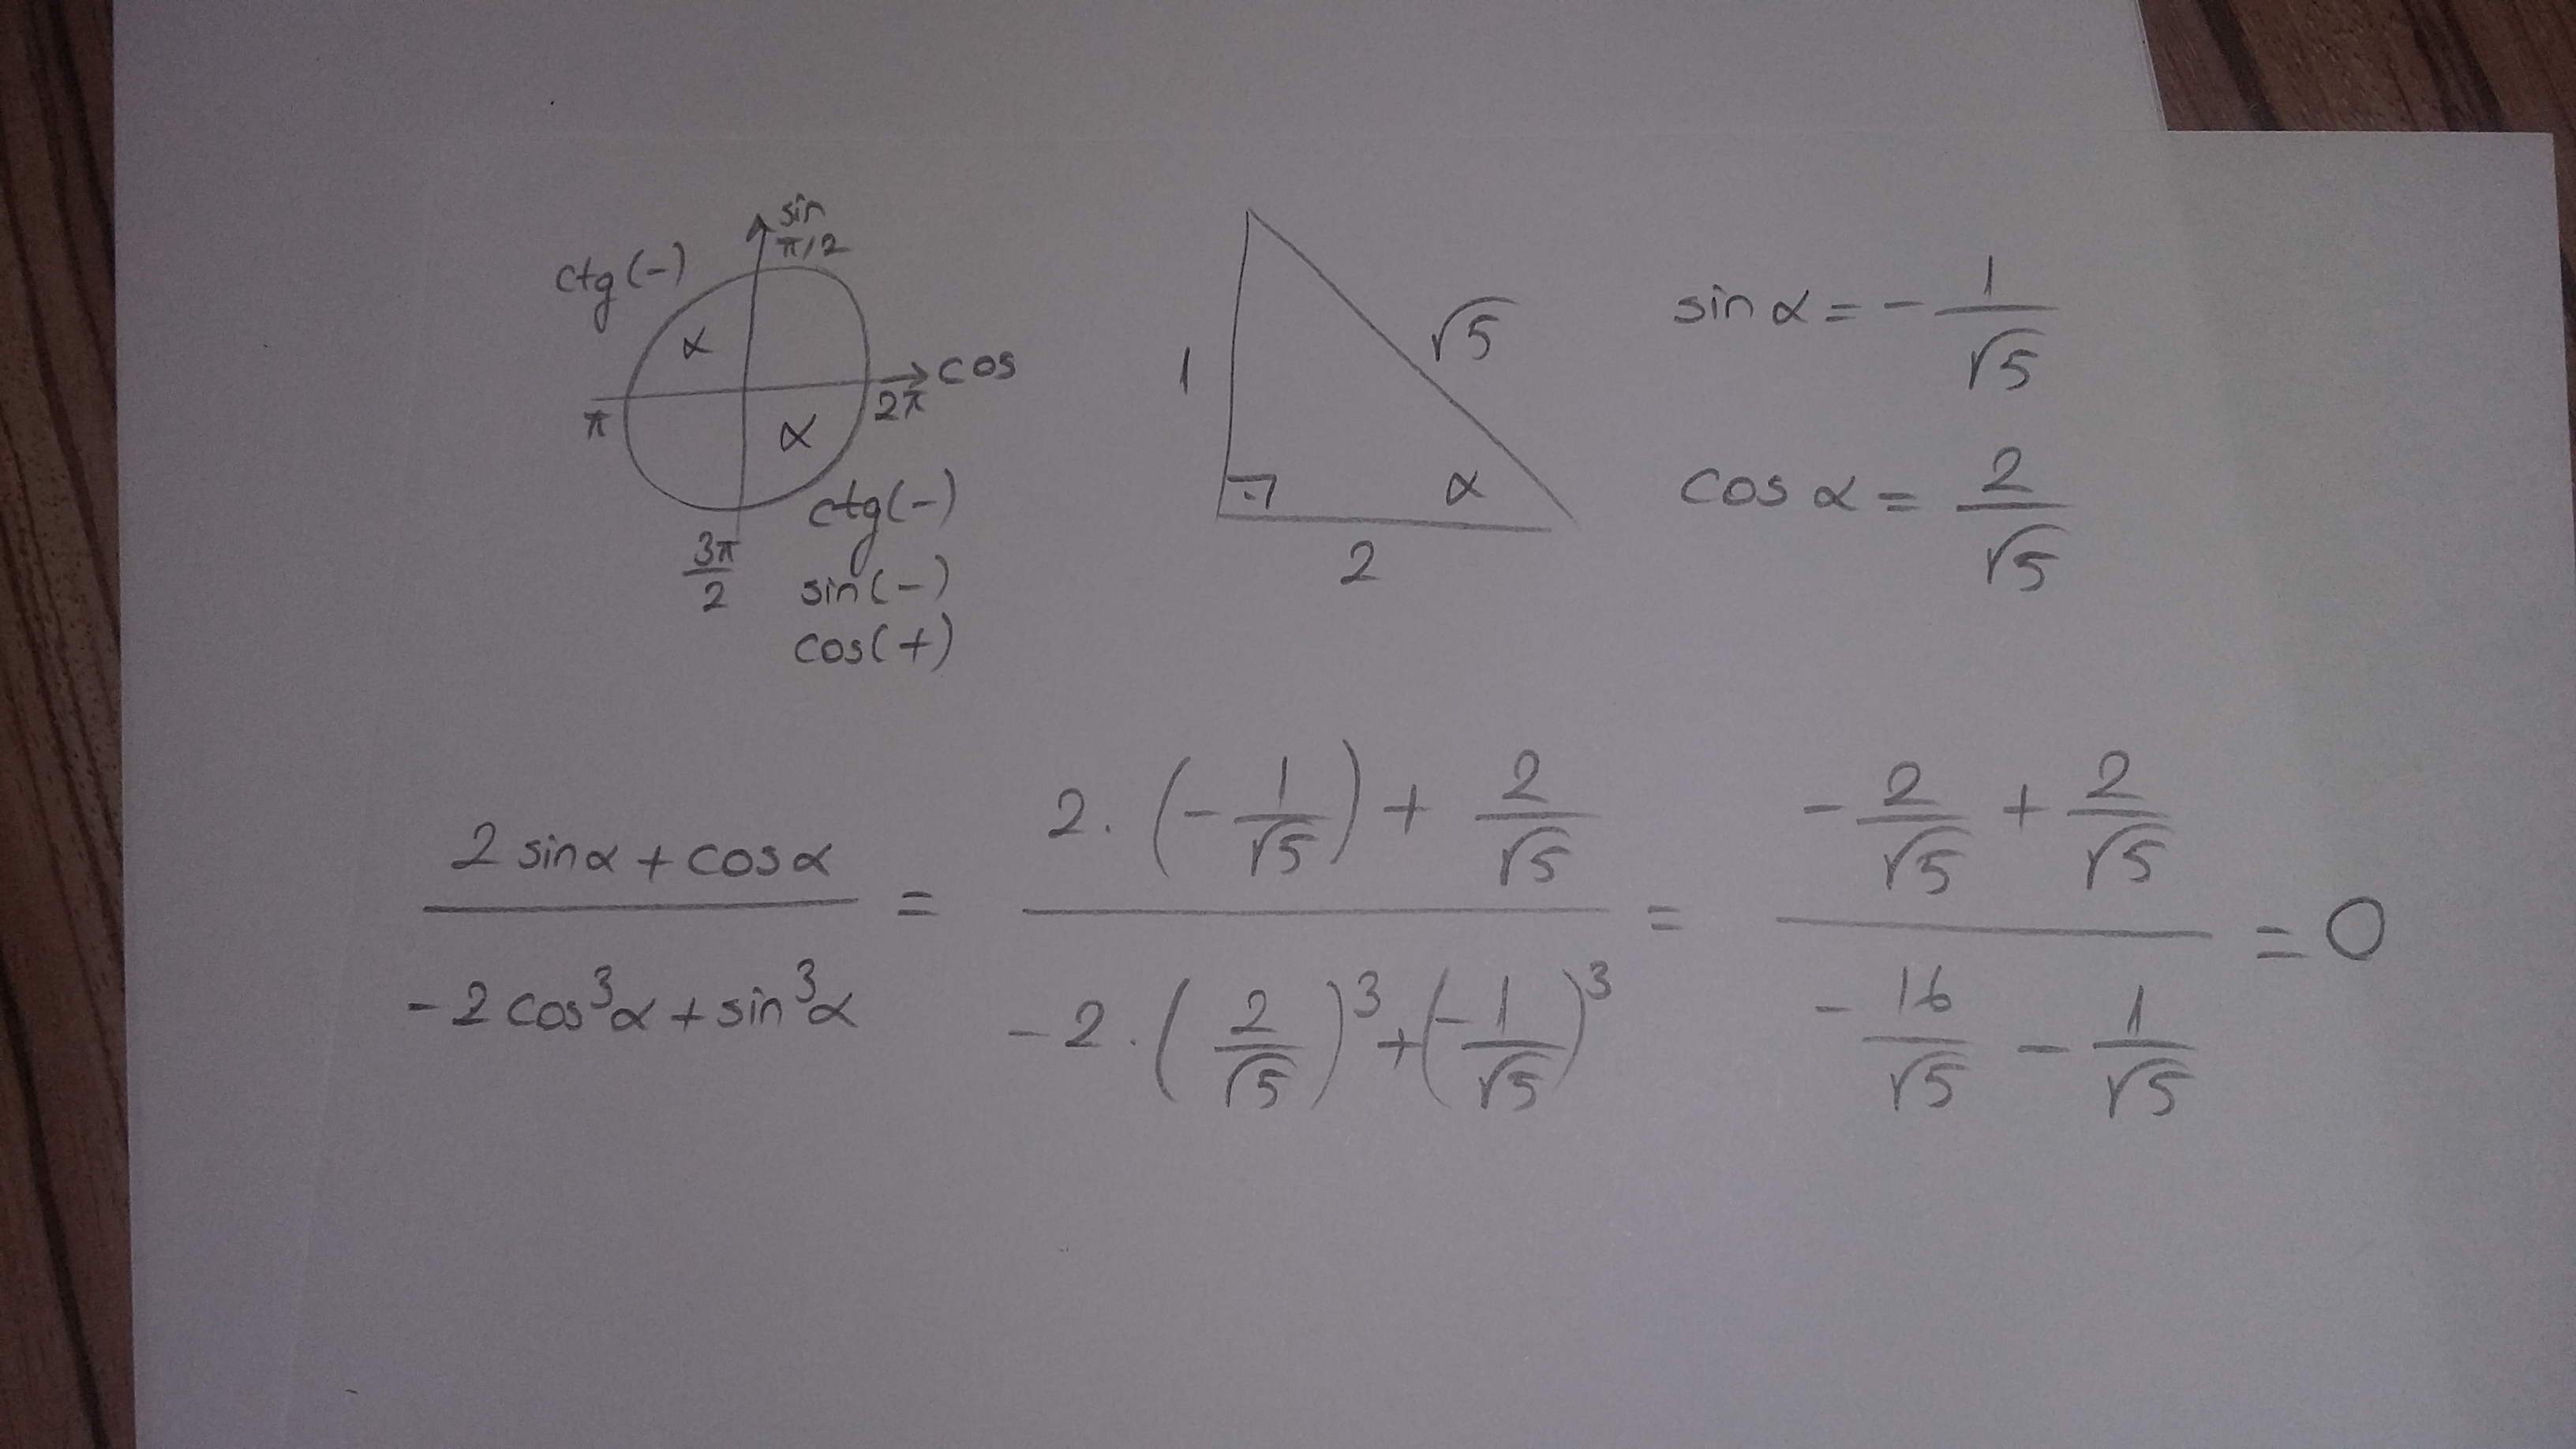 sin
π/2
ctg(-)
α
cos
π
2π
α
ctg(-)
3π/2
sin(-)
cos(+)
1
√5
α
2
sin α = - 1/√5
cos α = 2/√5
(2 sinα + cosα)/(-2 cos³α + sin³α) = (2.(-1/√5) + 2/√5)/(-2.(2/√5)³ + (-1/√5)³) = (-2/√5 + 2/√5)/(-16/√5 - 1/√5) = 0